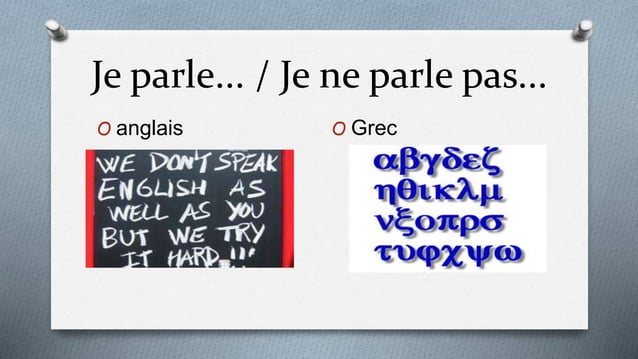 Je parle... / Je ne parle pas...
O anglais
O Grec
WE DON'T SPEAK
ENGLISH AS
WELL AS YOU
BUT WE TRY
IT HARD!!!
αβγδεζ
ηθικλμ
νξοπρσ
τυφχψω